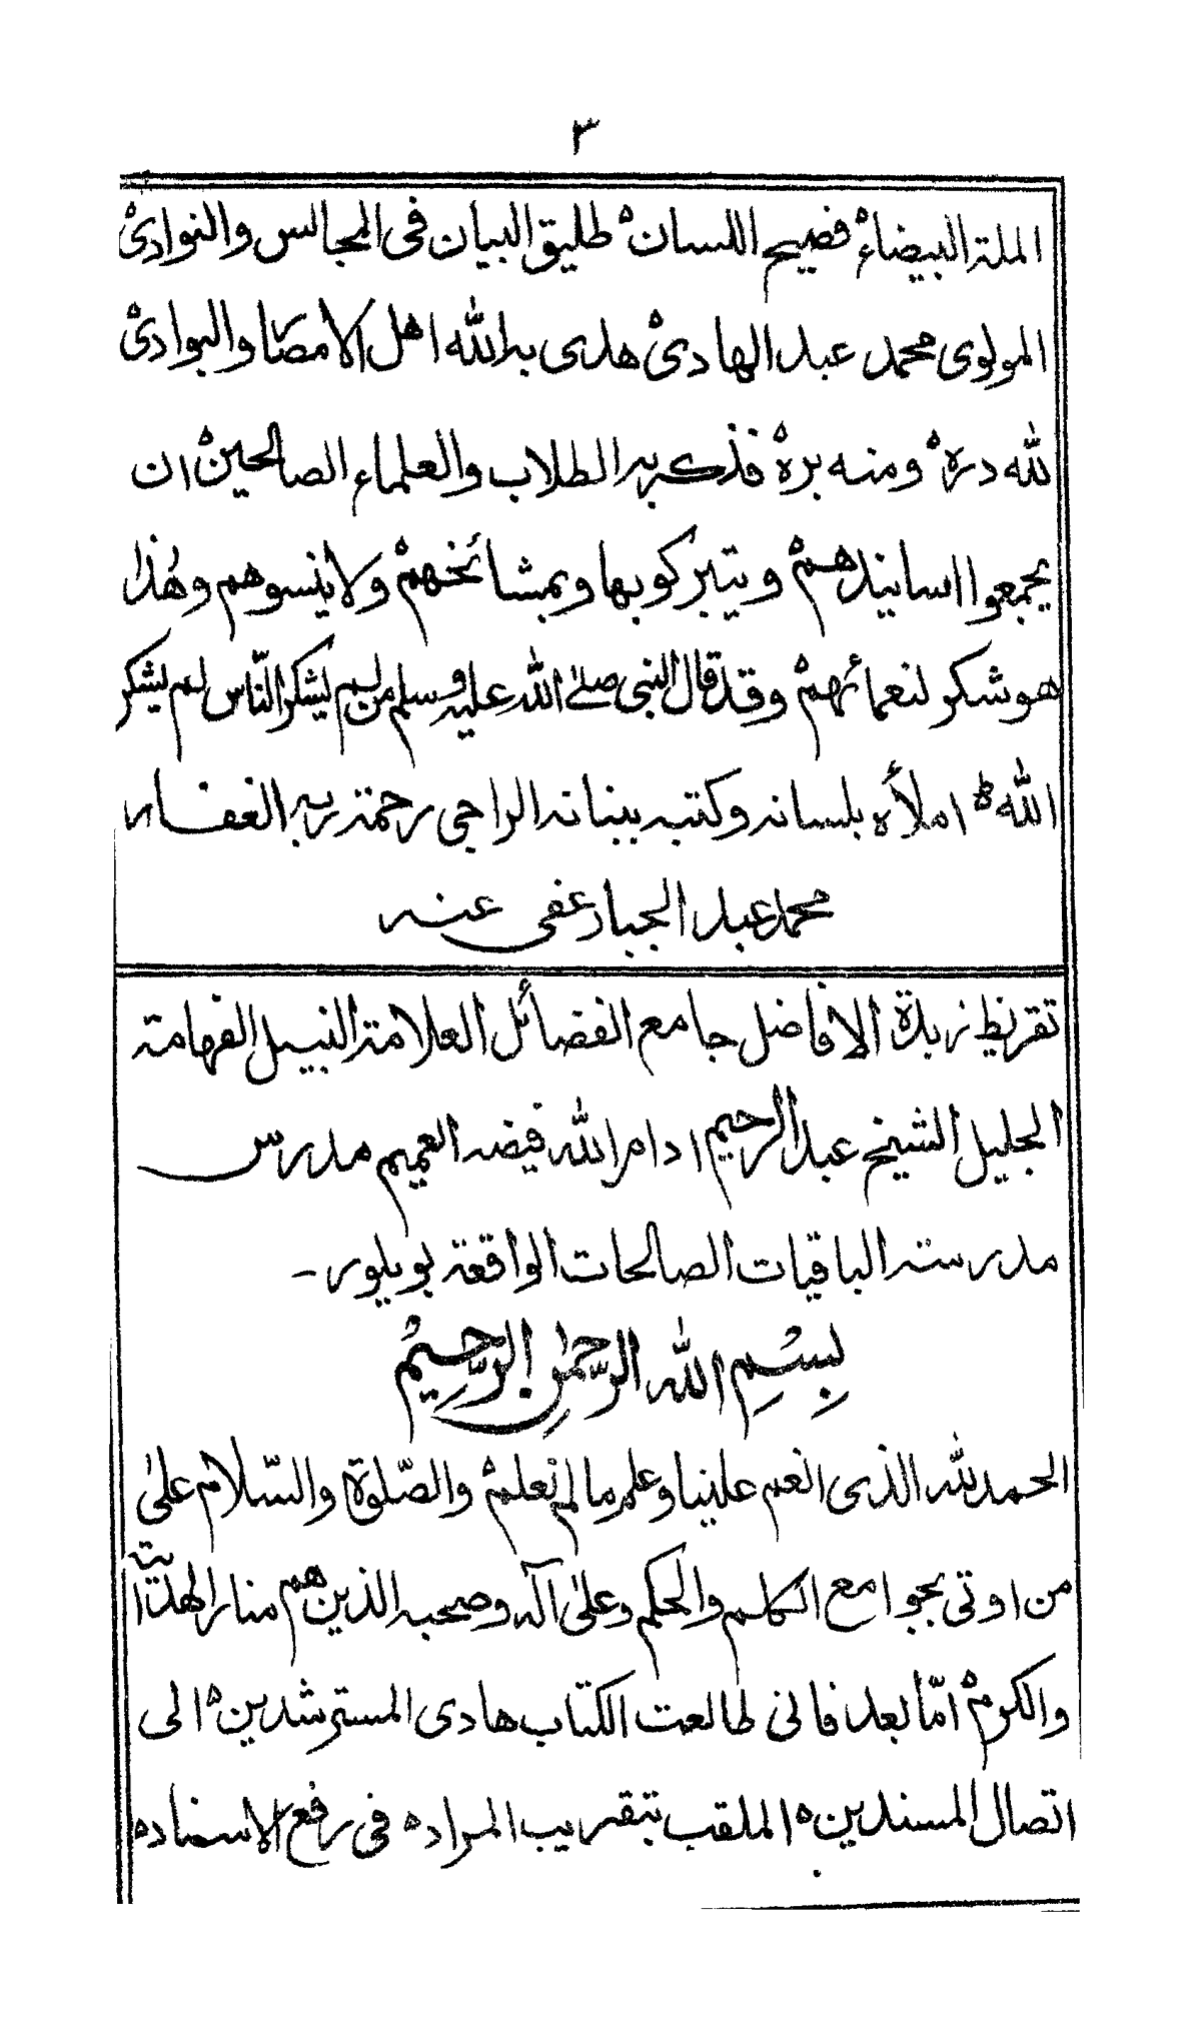 ٣
الملة البيضاءْ فصيح اللسانْ طليق البيان فى المجالس والنوادىْ
المولوى محمد عبد الهادىْ هدى به الله اهل الامصار والبوادىْ
لله درهْ ومنه برهْ فذكر به الطلاب والعلماء الصالحينْ ان
يجمعوا اسانيدهمْ ويتبركو بها وبمشائخهمْ ولا ينسوهم وهٰذا
هو شكر لنعمائهمْ وقد قال النبى صلى الله عليه وسلم من لم يشكر النّاس لم يشكر
الله ط املأه بلسانه وكتبه ببنانه الراجى رحمة ربه الغفار
محمد عبد الجبار عفى عنه
تقريظ زبدة الافاضل جامع الفضائل العلامة النبيل الفهامة
الجليل الشيخ عبد الرحيم ادام الله فيضه العميم مدرس
مدرسة الباقيات الصالحات الواقعة بويلور-
بِسْمِ الله الرّحمٰنِ الرّحِيْم
الحمد لله الذى انعم علينا وعلم ما لم نعلمْ والصّلوة والسّلام علىٰ
من اوتى بجوامع الكلم والحكم وعلىٰ آله وصحبه الذين هم منار الهداية
والكرمْ امّا بعد فانى طالعت الكتاب هادى المسترشدينْ الى
اتصال المسندين ه الملقب بتقريب المراد ه فى رفع الاسناد ه